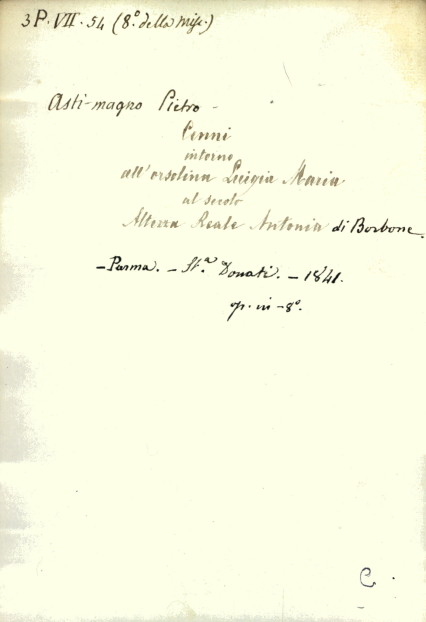 3P.VII.54 (8.º della Misc.)
Asti-magno Pietro -
Cenni
intorno
all'orsolina Luigia Maria
al secolo
Altezza Reale Antonia di Borbone.
- Parma. - St.ª Donati. - 1841.
op. in - 8º.
C.